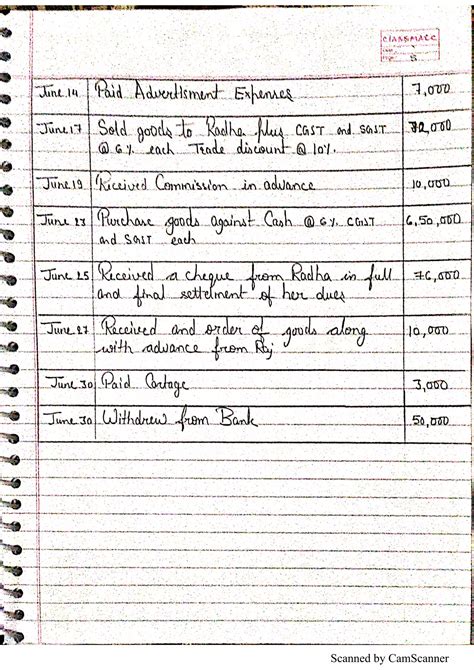 CLASSMATE
June 14 Paid Advertisment Expenses 7,000
June 17 Sold goods to Radha plus CGST and SGST 72,000
@ 6% each Trade discount @ 10%.
June 19 Received Commission in advance 10,000
June 23 Purchase goods against Cash @ 6% CGST 6,50,000
and SGST each
June 25 Received a cheque from Radha in full 76,000
and final settelment of her dues
June 27 Received and order of goods along 10,000
with advance from Raj
June 30 Paid Cartage 3,000
June 30 Withdrew from Bank 50,000
Scanned by CamScanner